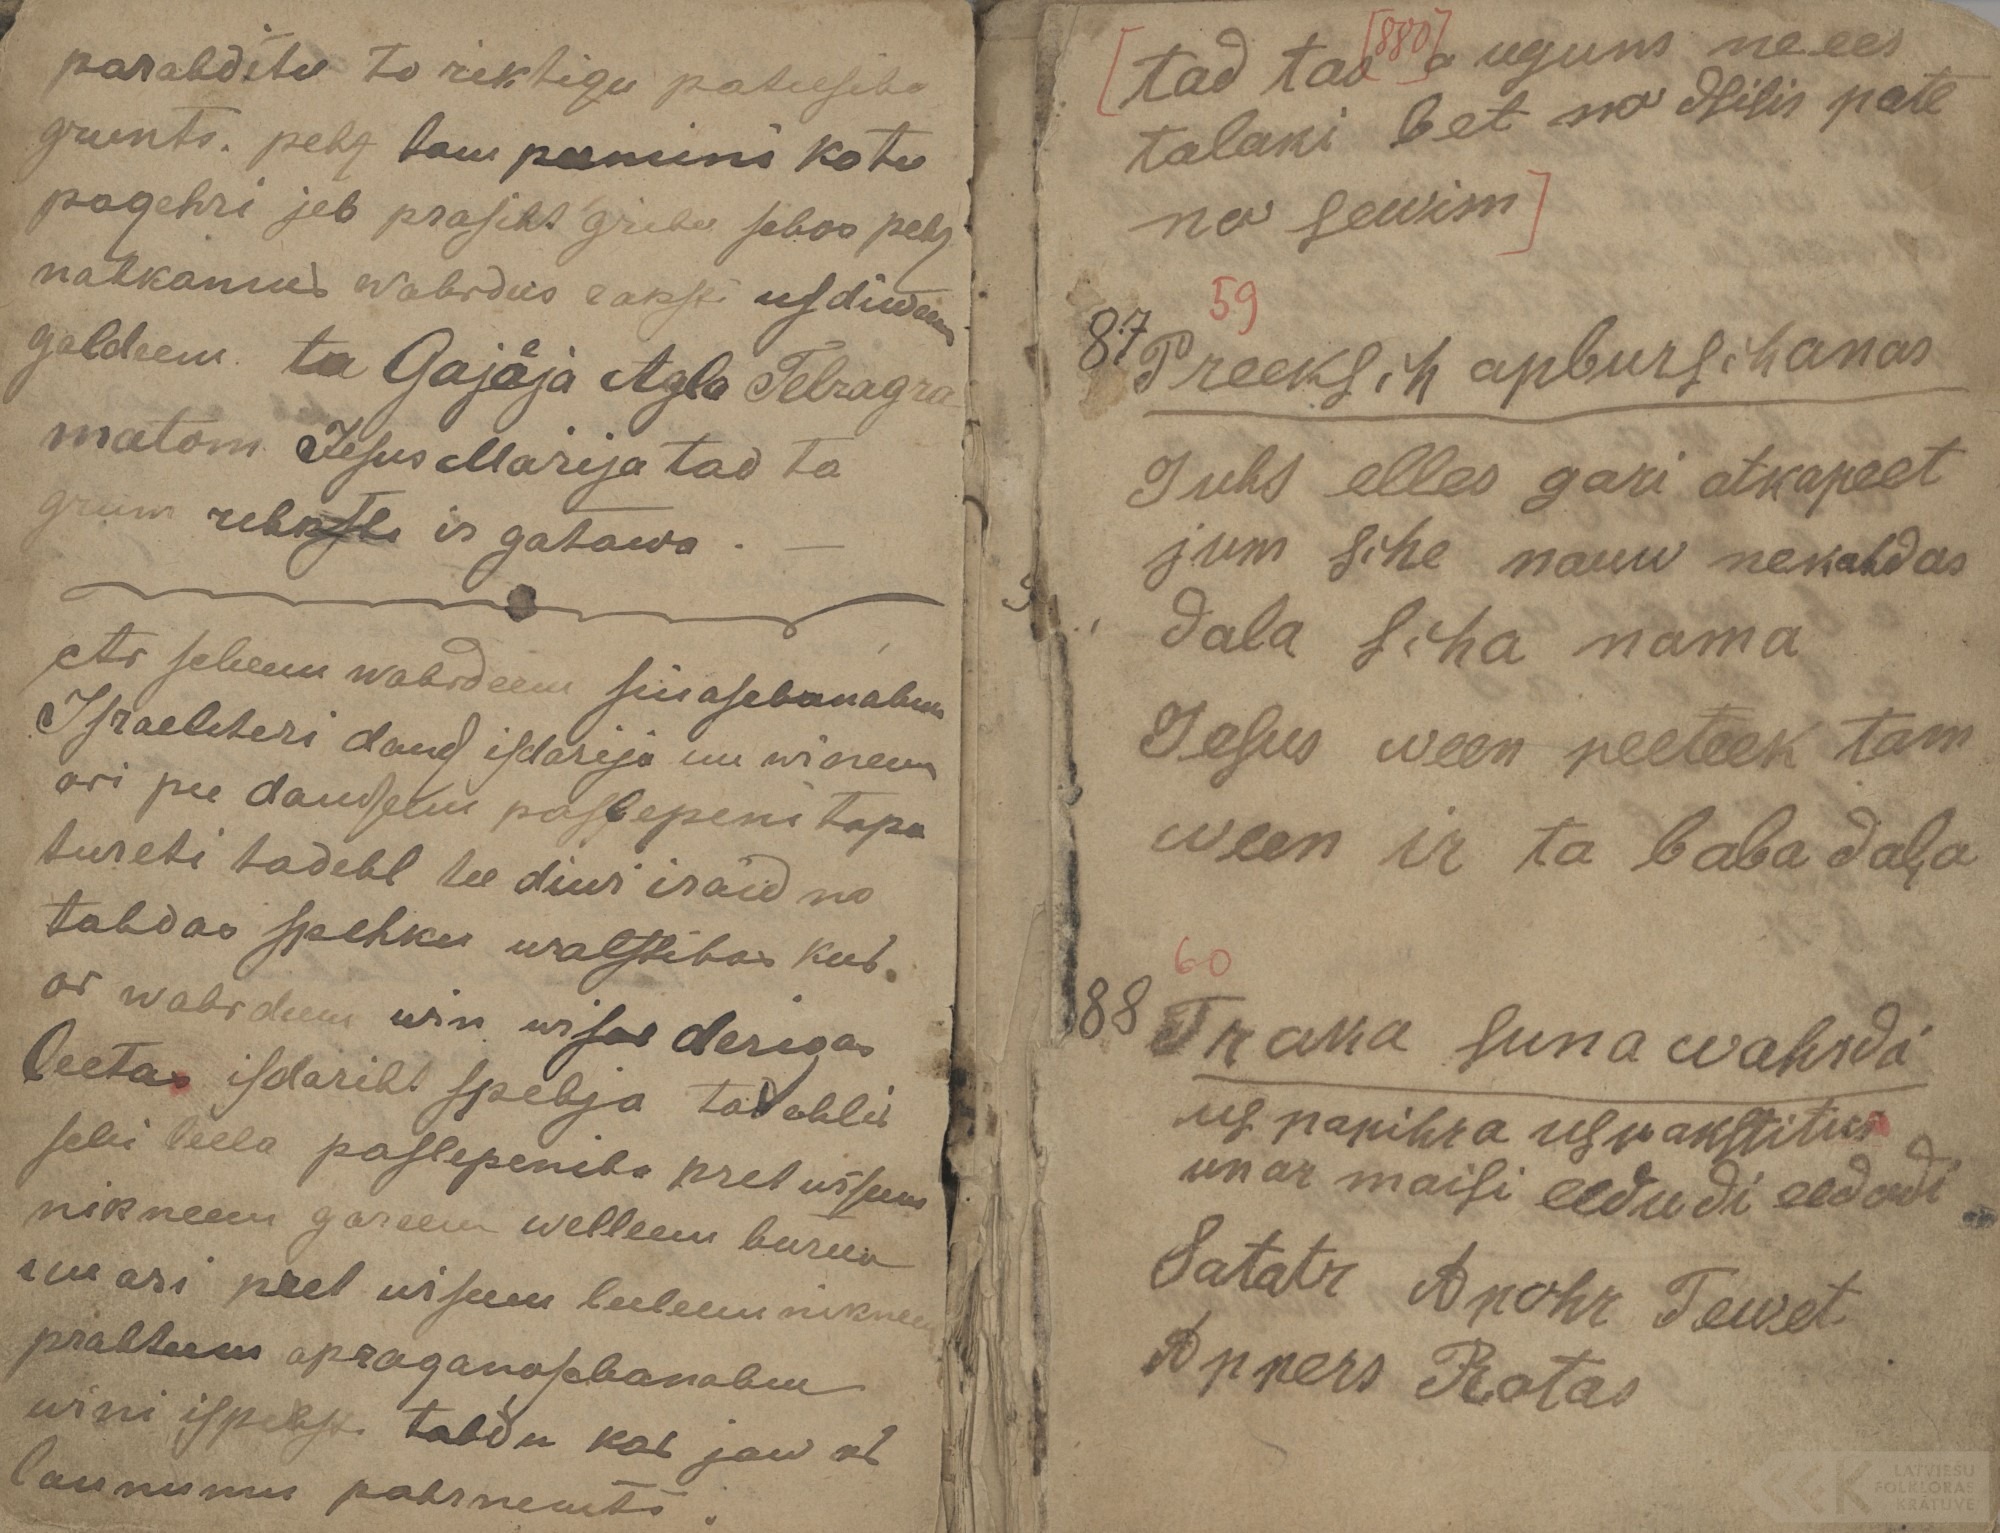 parahditu to riktigu pateesibo
grunts. pehz tam pemini ko tu
pagehri jeb prasiht gribu schos pehz
nahkamus wahrdus raksti us diweem
galdeem ta Gajaja Agla Tetragra
e
matom Jesus Marija tad ta
grum ir gatawa. —
Ar scheem wahrdeem sinaschanahm
Israeliteri daudz isdarija un wineem
ari pee daudseem paslepeni tapa
tureti tadehl tee diwi iraid no
tahdas spehku walstibas kur
ar wahrdeem win wisas derigas
leetas isdariht spehja tad ahlis
schi leela paslepeniba pret wiseem
nikneem gareem welleem burwu
un ari pret wiseem leeleem nikneem
prahteem apraganoschanahm
wini ispehst tahdu kas jaw ar
launumu pahrnemts.
[tad tas [880] a uguns ne ees
talaki bet no dsilis pate
no sewim]
59
87 Preeksch apburschanas
Juhs elles gari atkapeet
jum sche nauw nekahdas
dala scha nama
Jesus ween peeteek tam
ween ir ta baba dala
60
88 Traka suna wahrdi
us papihra usrakstitus
un ar maisi eedudi eedodi
Satatr Apohr Tewet
Appers Rotas
LATVIEŠU
FOLKLORAS
KRĀTUVE